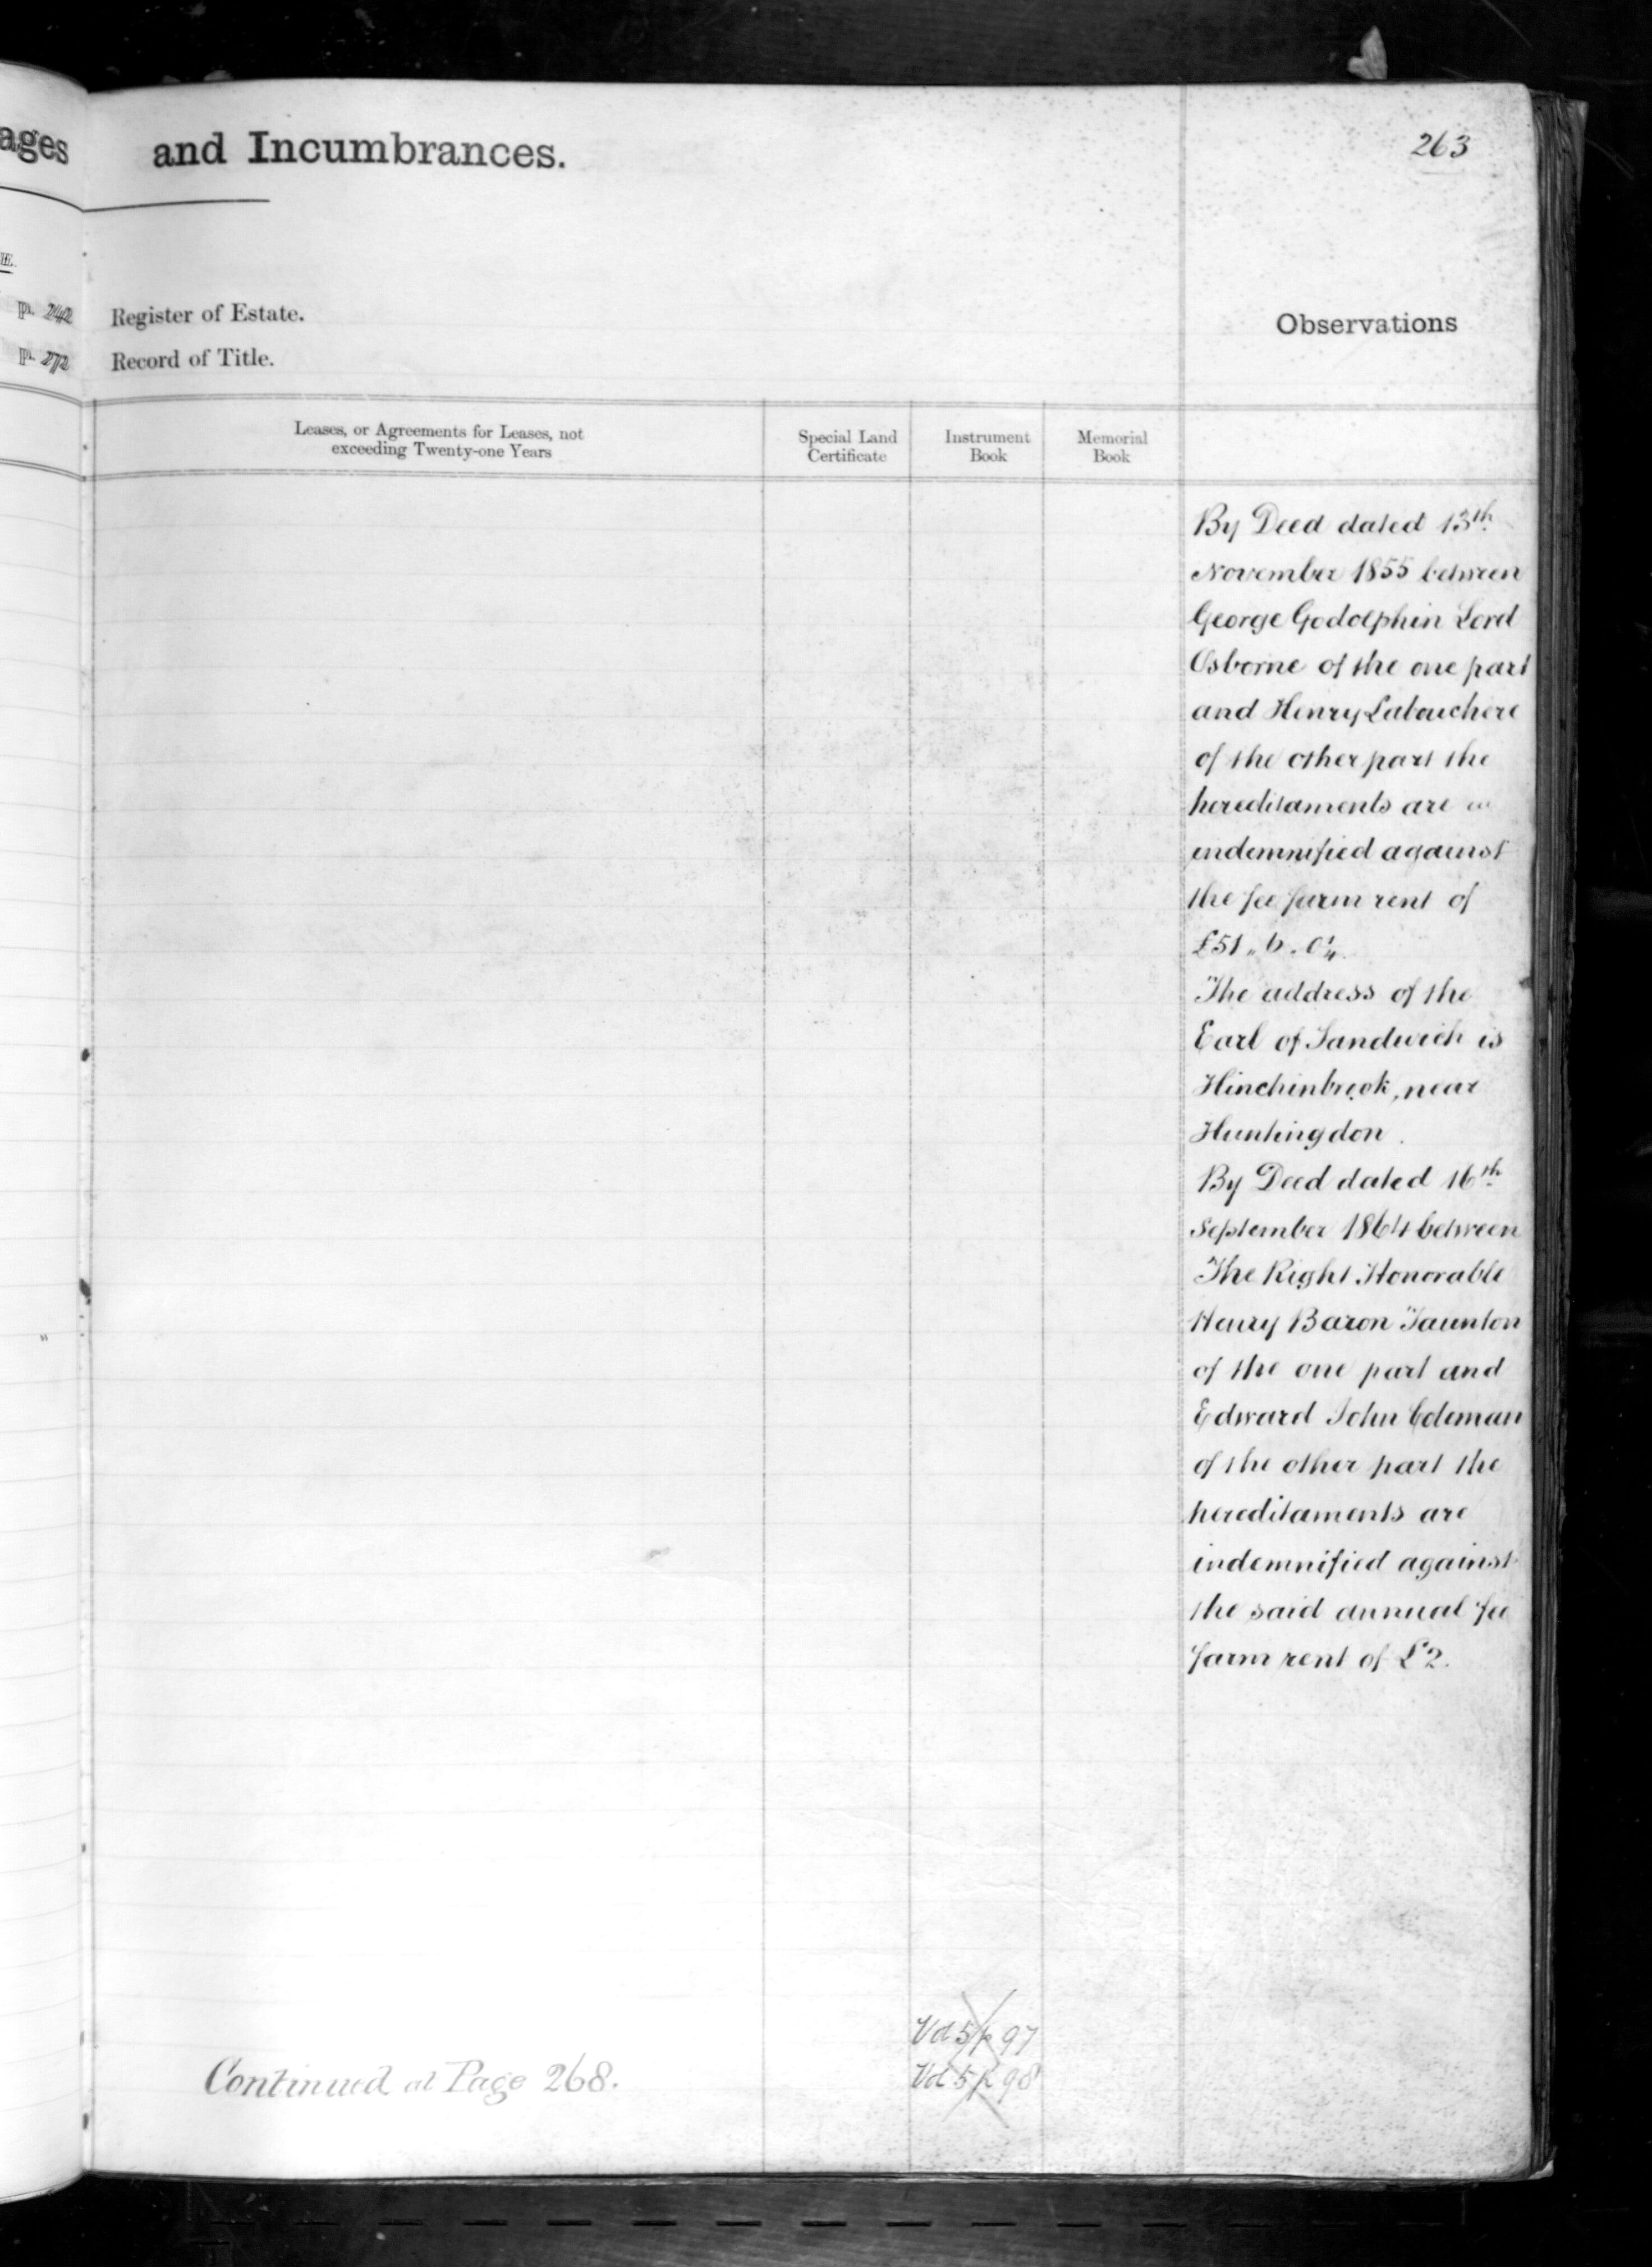 ages and Incumbrances.
263
E.
p. 242 Register of Estate.
p. 272 Record of Title.
Observations
Leases, or Agreements for Leases, not
exceeding Twenty-one Years
Special Land
Certificate
Instrument
Book
Memorial
Book
By Deed dated 13th
November 1855 between
George Godolphin Lord
Osborne of the one part
and Henry Labouchere
of the other part the
hereditaments are
indemnified against
the fee farm rent of
£51 " 6 . 0¼
The address of the
Earl of Sandwich is
Hinchinbrook, near
Huntingdon.
By Deed dated 16th
September 1864 between
The Right Honorable
Henry Baron Taunton
of the one part and
Edward John Coleman
of the other part the
hereditaments are
indemnified against
the said annual fee
farm rent of £2.
Vol 5 p 97
Vol 5 p 98
Continued at Page 268.